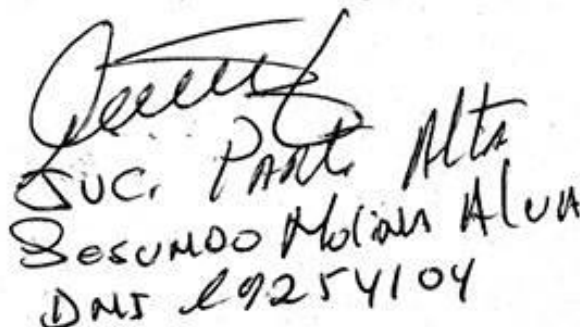 SUC. Parte Alta
Segundo Molina Alva
DNI 19254104